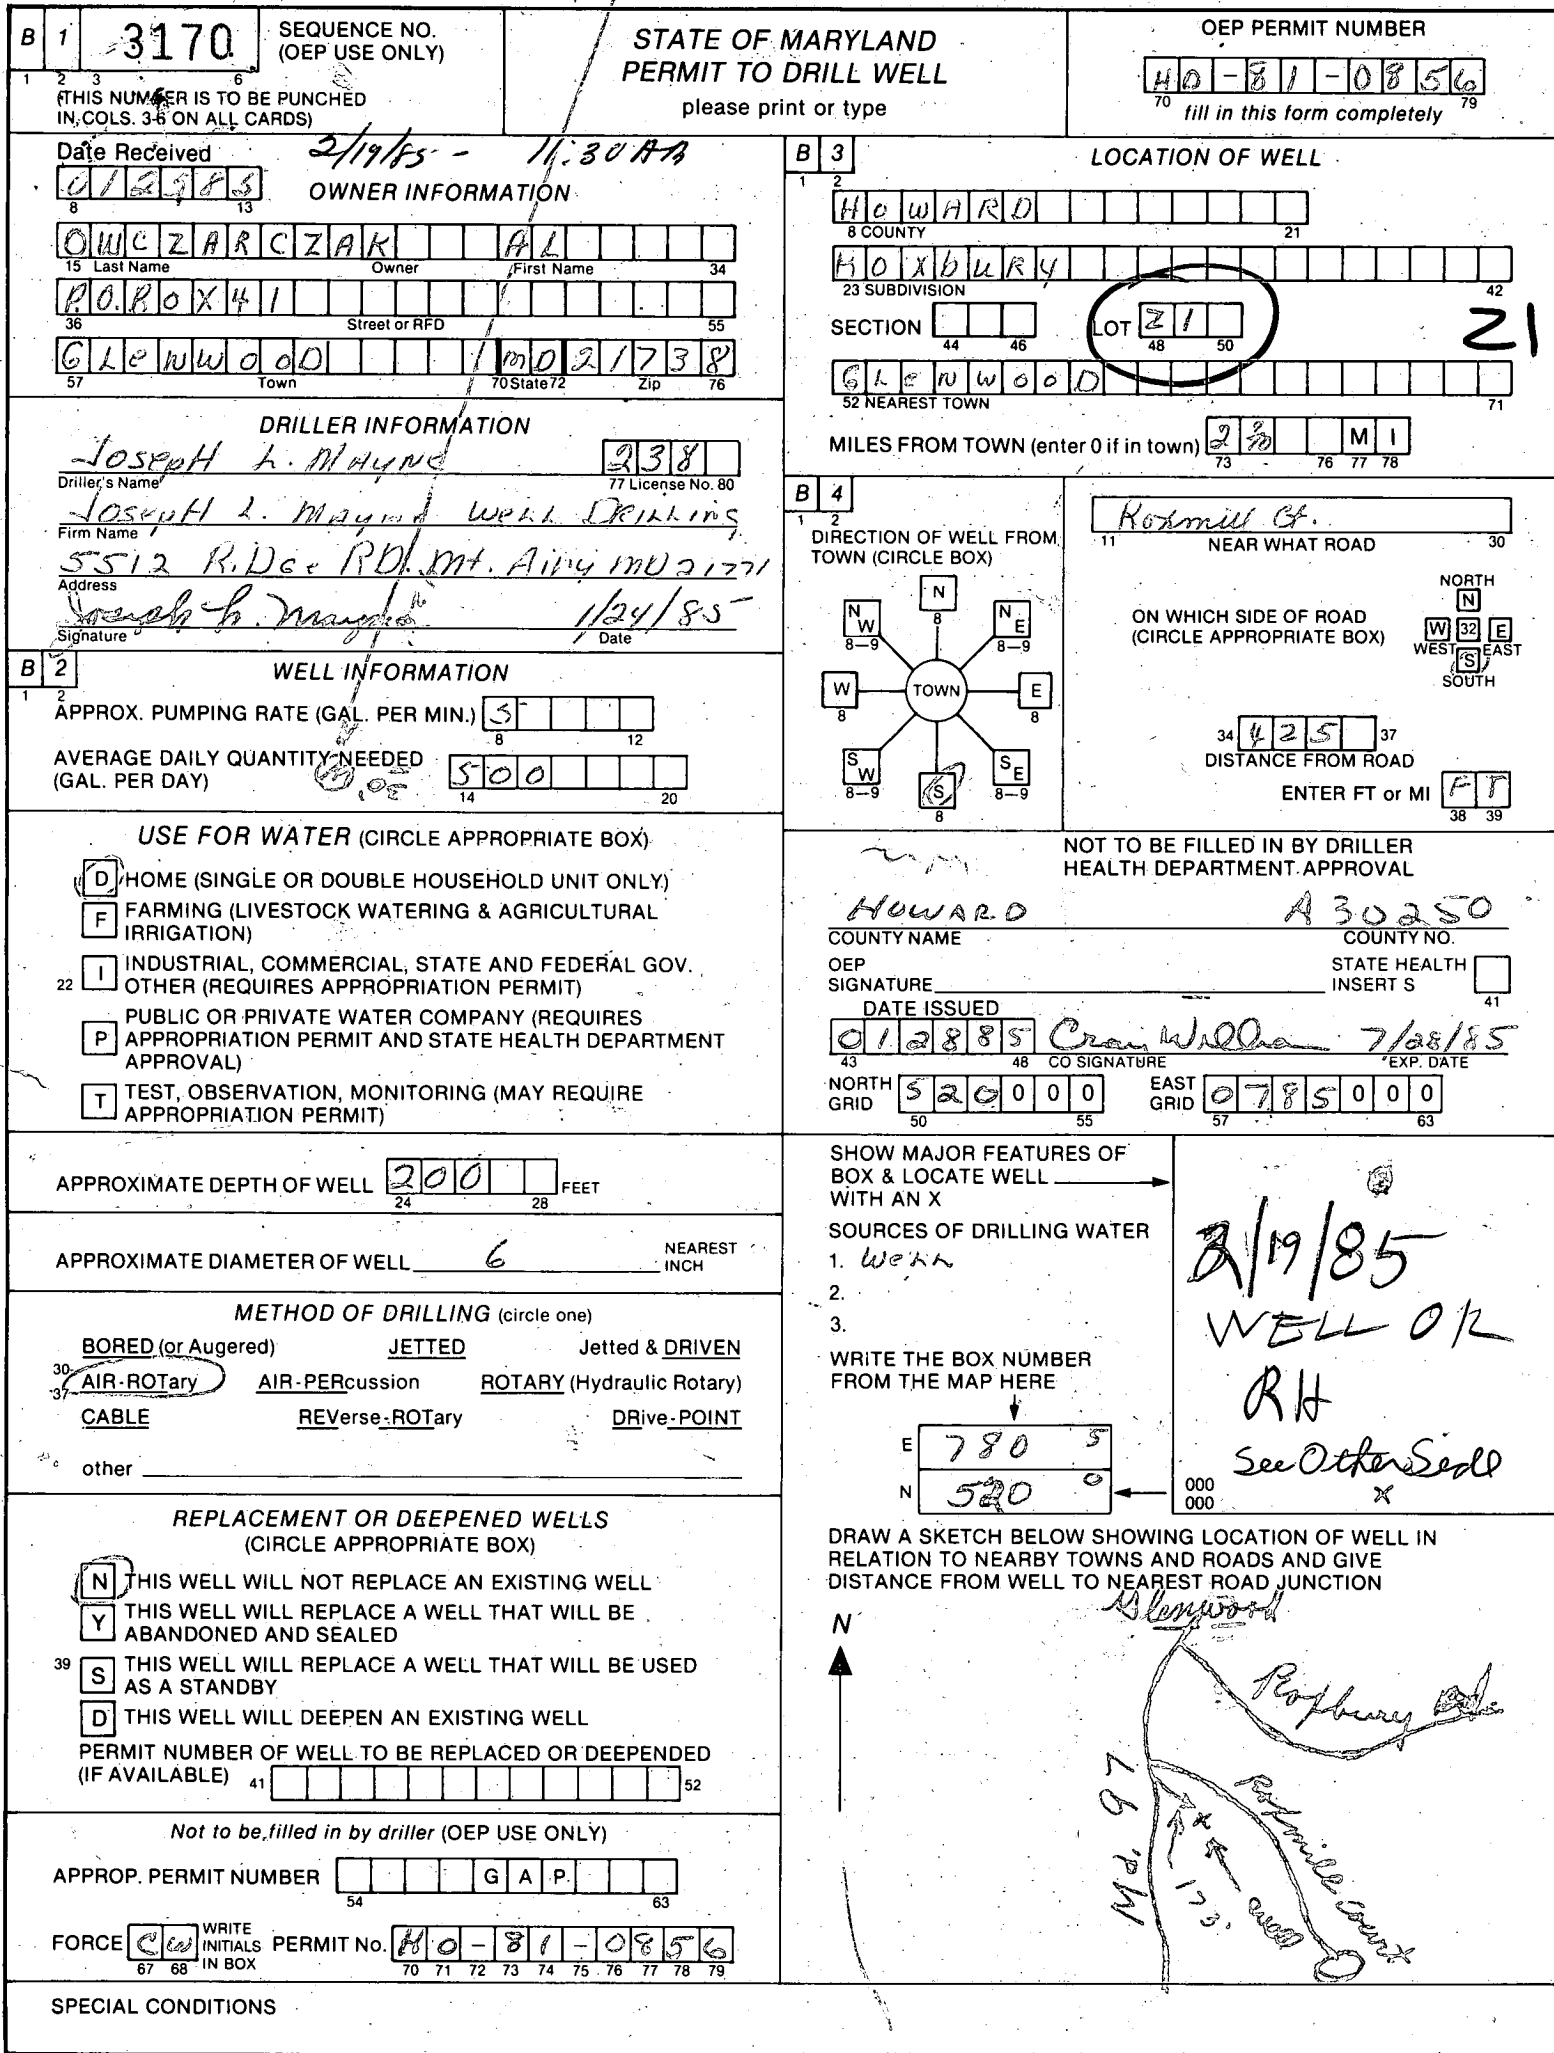 B 1 3170 SEQUENCE NO. (OEP USE ONLY)
1 2 3 6
(THIS NUMBER IS TO BE PUNCHED
IN COLS. 3-6 ON ALL CARDS)
STATE OF MARYLAND
PERMIT TO DRILL WELL
please print or type
OEP PERMIT NUMBER
HO-81-0856
70 79
fill in this form completely
Date Received 2/19/85 - 11:30 AM
8 13
OWNER INFORMATION
OWCZARCZAK AL
15 Last Name Owner First Name 34
P.O. BOX 41
36 Street or RFD 55
GLeNWOOD MD 21738
57 Town 70 State 72 Zip 76
DRILLER INFORMATION
Joseph L. Mayne 238
Driller's Name 77 License No. 80
Joseph L. Mayne Well Drilling
Firm Name
5512 R.Dge RD. Mt. Airy MD 21771
Address
Joseph L. Mayne 1/24/85
Signature Date
B 2 WELL INFORMATION
1 2
APPROX. PUMPING RATE (GAL. PER MIN.) 5
8 12
AVERAGE DAILY QUANTITY NEEDED
(GAL. PER DAY) 500
14 20
USE FOR WATER (CIRCLE APPROPRIATE BOX)
D HOME (SINGLE OR DOUBLE HOUSEHOLD UNIT ONLY)
F FARMING (LIVESTOCK WATERING & AGRICULTURAL
IRRIGATION)
22 I INDUSTRIAL, COMMERCIAL, STATE AND FEDERAL GOV.
OTHER (REQUIRES APPROPRIATION PERMIT)
P PUBLIC OR PRIVATE WATER COMPANY (REQUIRES
APPROPRIATION PERMIT AND STATE HEALTH DEPARTMENT
APPROVAL)
T TEST, OBSERVATION, MONITORING (MAY REQUIRE
APPROPRIATION PERMIT)
APPROXIMATE DEPTH OF WELL 200 FEET
24 28
APPROXIMATE DIAMETER OF WELL 6 NEAREST INCH
METHOD OF DRILLING (circle one)
BORED (or Augered) JETTED Jetted & DRIVEN
30-37 AIR-ROTary AIR-PERcussion ROTARY (Hydraulic Rotary)
CABLE REVerse-ROTary DRive-POINT
other
REPLACEMENT OR DEEPENED WELLS
(CIRCLE APPROPRIATE BOX)
N THIS WELL WILL NOT REPLACE AN EXISTING WELL
Y THIS WELL WILL REPLACE A WELL THAT WILL BE
ABANDONED AND SEALED
39 S THIS WELL WILL REPLACE A WELL THAT WILL BE USED
AS A STANDBY
D THIS WELL WILL DEEPEN AN EXISTING WELL
PERMIT NUMBER OF WELL TO BE REPLACED OR DEEPENDED
(IF AVAILABLE) 41 52
Not to be filled in by driller (OEP USE ONLY)
APPROP. PERMIT NUMBER G A P
54 63
FORCE CW WRITE INITIALS IN BOX PERMIT No. HO-81-0856
67 68 70 71 72 73 74 75 76 77 78 79
SPECIAL CONDITIONS
B 3 LOCATION OF WELL
1 2
HOWARD
8 COUNTY 21
23 SUBDIVISION 42
SECTION LOT 21 21
44 46 48 50
GLeNWOOD
52 NEAREST TOWN 71
MILES FROM TOWN (enter 0 if in town) MI
73 76 77 78
B 4
1 2
DIRECTION OF WELL FROM
TOWN (CIRCLE BOX)
N
8
NW NE
8-9 8-9
W TOWN E
8 8
SW SE
8-9 8-9
S
8
Roxmill Ct.
11 NEAR WHAT ROAD 30
ON WHICH SIDE OF ROAD
(CIRCLE APPROPRIATE BOX)
NORTH
N
W 32 E
WEST EAST
S
SOUTH
34 425 37
DISTANCE FROM ROAD
ENTER FT or MI FT
38 39
NOT TO BE FILLED IN BY DRILLER
HEALTH DEPARTMENT APPROVAL
HOWARD A30250
COUNTY NAME COUNTY NO.
OEP
SIGNATURE
STATE HEALTH
INSERT S
41
DATE ISSUED
012885 7/28/85
43 48 CO SIGNATURE EXP. DATE
NORTH GRID 520000 EAST GRID 0785000
50 55 57 63
SHOW MAJOR FEATURES OF
BOX & LOCATE WELL
WITH AN X
SOURCES OF DRILLING WATER
1. Well
2.
3.
WRITE THE BOX NUMBER
FROM THE MAP HERE
E 780 5
N 520 0
2/19/85
WELL OK
RH
See Other Side
000
000 X
DRAW A SKETCH BELOW SHOWING LOCATION OF WELL IN
RELATION TO NEARBY TOWNS AND ROADS AND GIVE
DISTANCE FROM WELL TO NEAREST ROAD JUNCTION
Glenwood
N
Roxbury Rd.
Md. 97
Roxmill Court
x
well